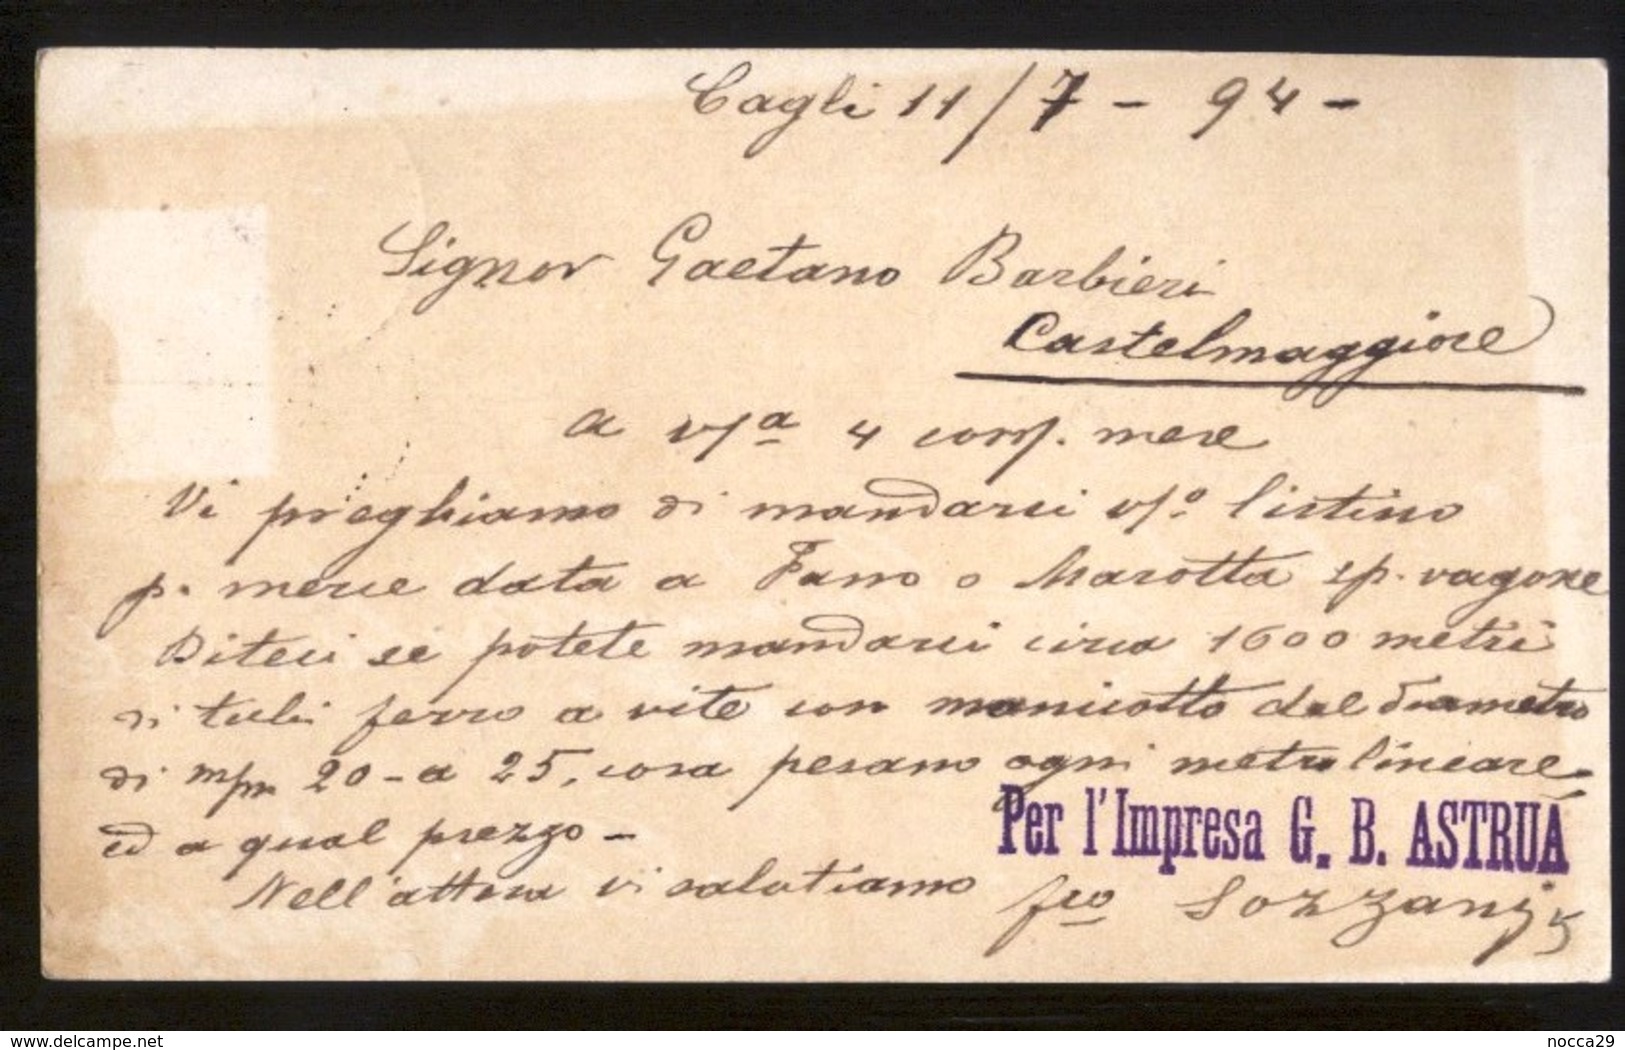 Cagli 11/7 - 94 -
Signor Gaetano Barbieri
Castelmaggiore
a v/a 4 corr. mese
Vi preghiamo di mandarci v/o listino
p. merce data a Fano o Marotta sp. vagone
Diteci se potete mandarci circa 1600 metri
di tubi ferro a vite con manicotto del diametro
di m/m 20 - a 25, cosa pesano ogni metro lineare
ed a qual prezzo -
Per l'Impresa G. B. ASTRUA
Nell'attesa vi salutiamo fco Sozzani
delcampe.net
nocca29